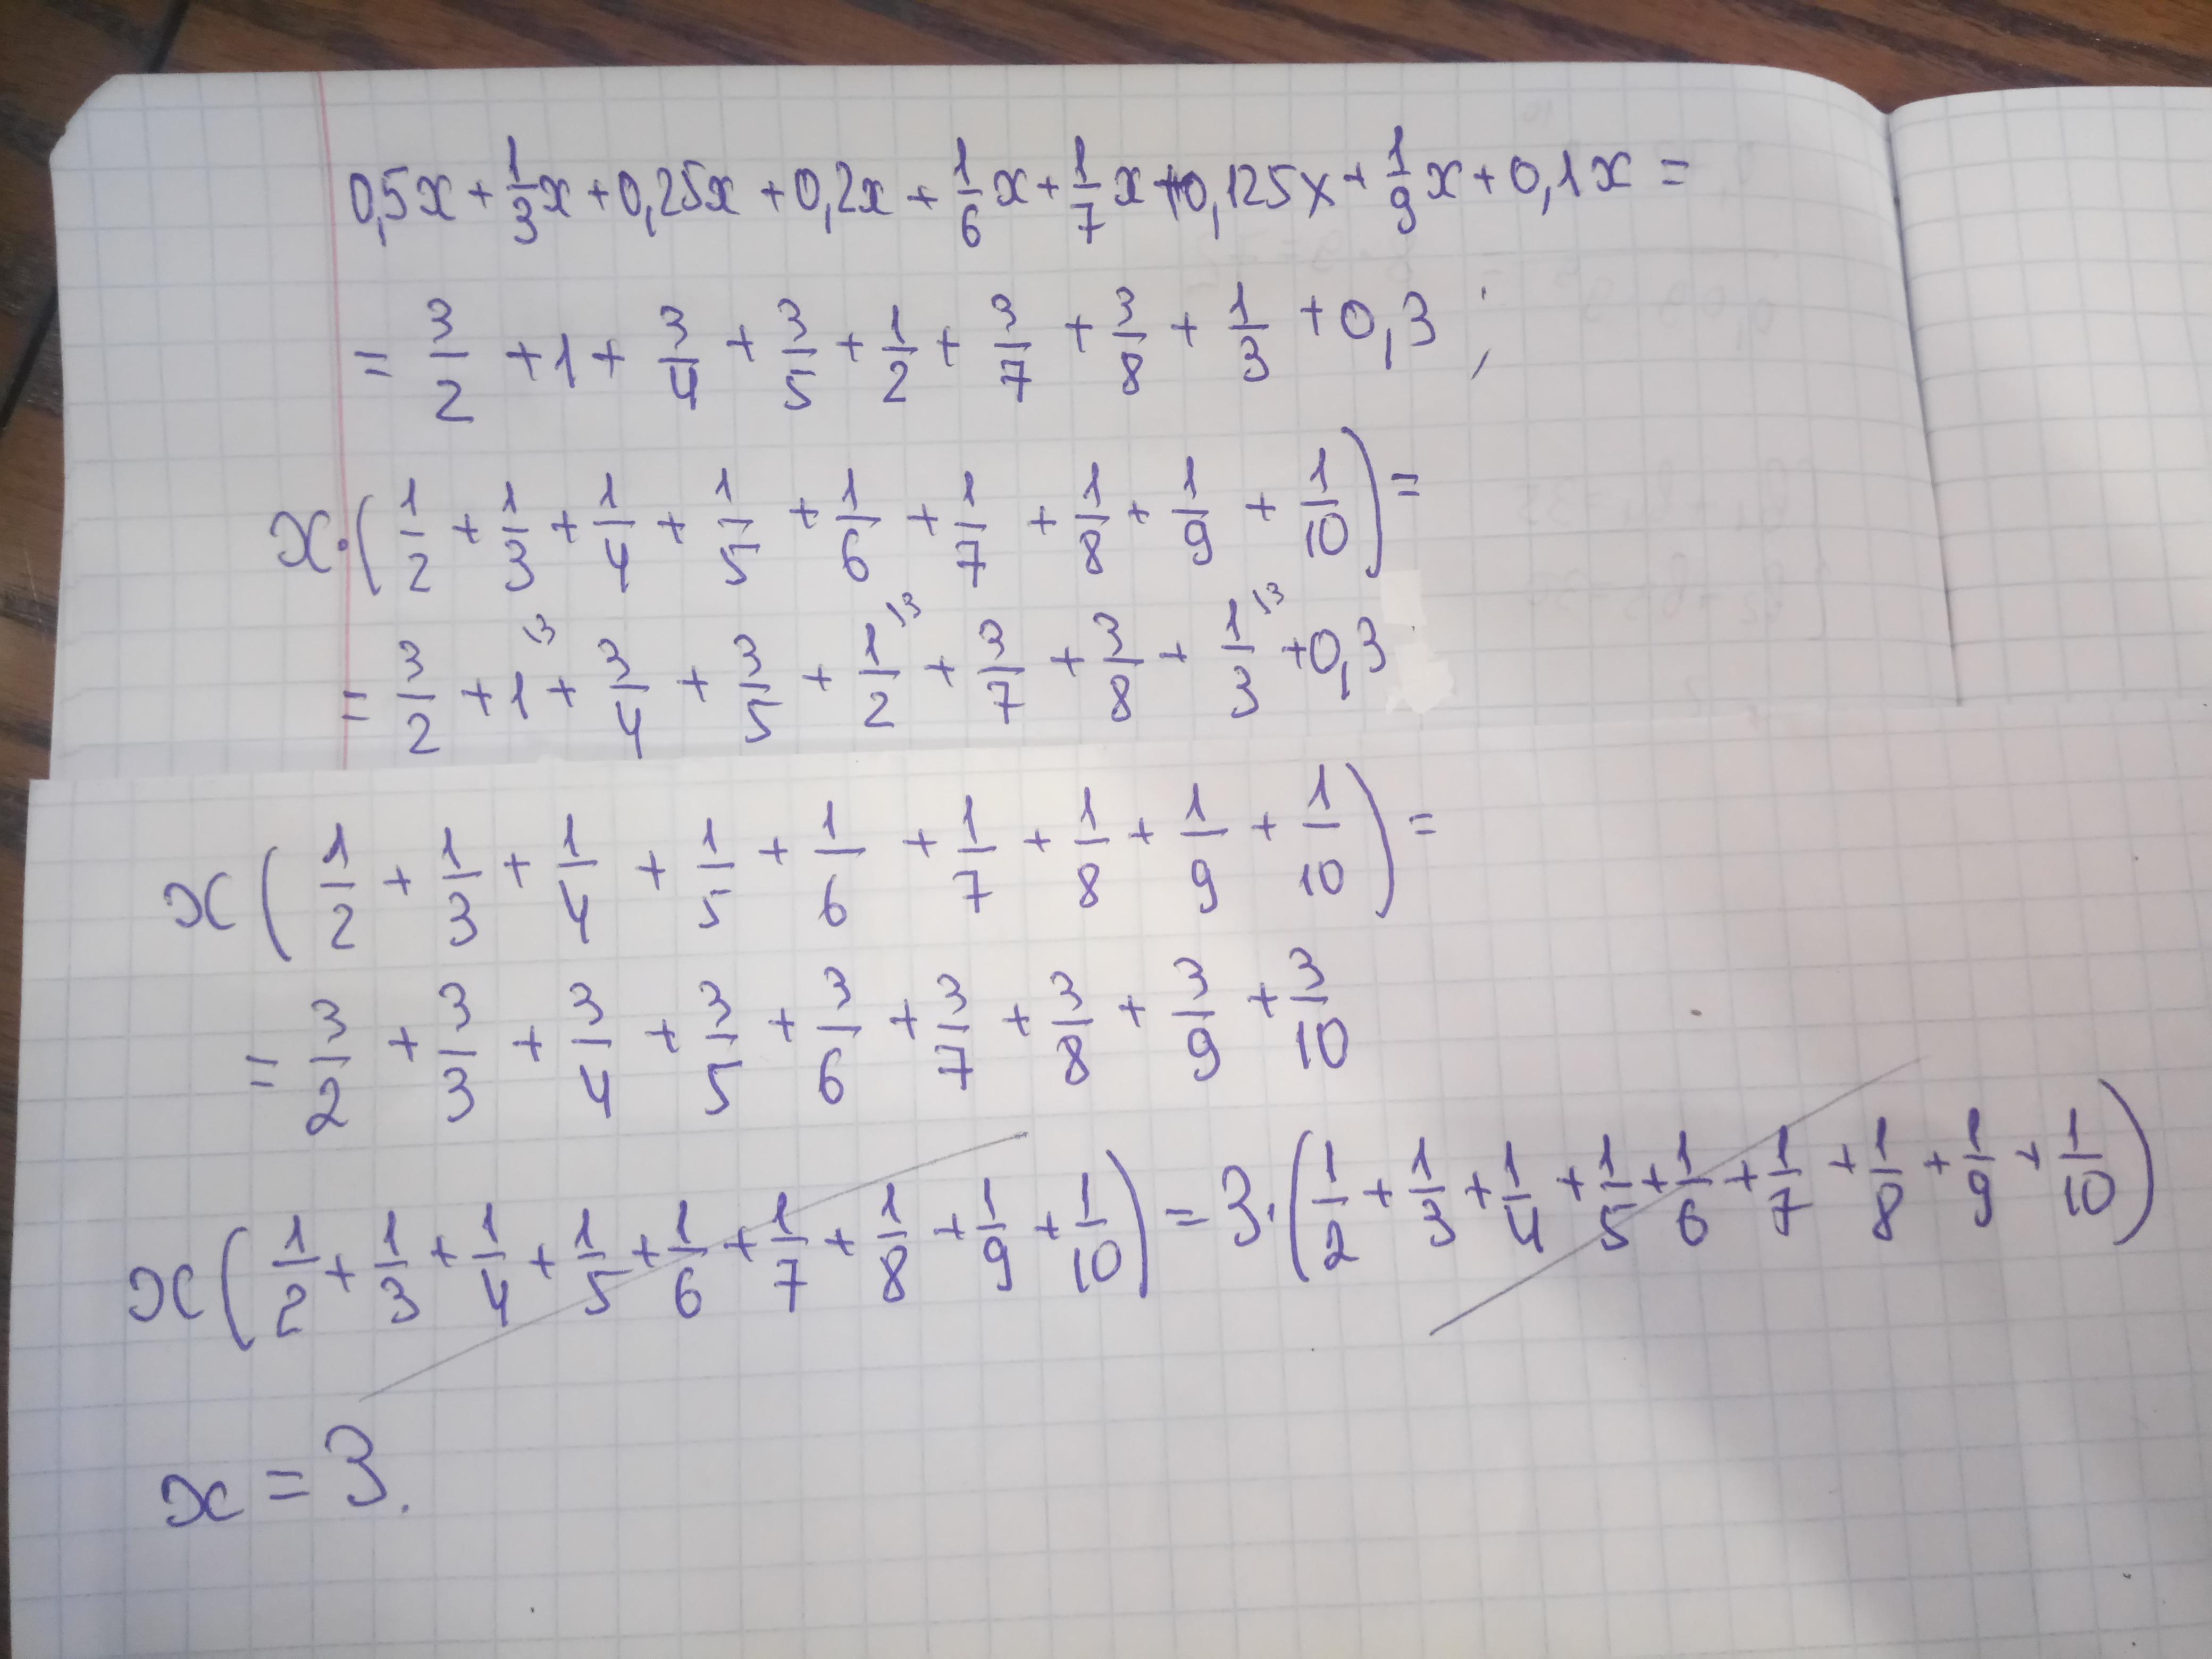 0,5x + 1/3 x + 0,25x + 0,2x + 1/6 x + 1/7 x + 0,125x + 1/9 x + 0,1x =
= 3/2 + 1 + 3/4 + 3/5 + 1/2 + 3/7 + 3/8 + 1/3 + 0,3 ;
x · (1/2 + 1/3 + 1/4 + 1/5 + 1/6 + 1/7 + 1/8 + 1/9 + 1/10) =
= 3/2 + 1^{\3} + 3/4 + 3/5 + 1/2^{\3} + 3/7 + 3/8 + 1/3^{\3} + 0,3
x (1/2 + 1/3 + 1/4 + 1/5 + 1/6 + 1/7 + 1/8 + 1/9 + 1/10) =
= 3/2 + 3/3 + 3/4 + 3/5 + 3/6 + 3/7 + 3/8 + 3/9 + 3/10
x (1/2 + 1/3 + 1/4 + 1/5 + 1/6 + 1/7 + 1/8 + 1/9 + 1/10) = 3 · (1/2 + 1/3 + 1/4 + 1/5 + 1/6 + 1/7 + 1/8 + 1/9 + 1/10)
x = 3.